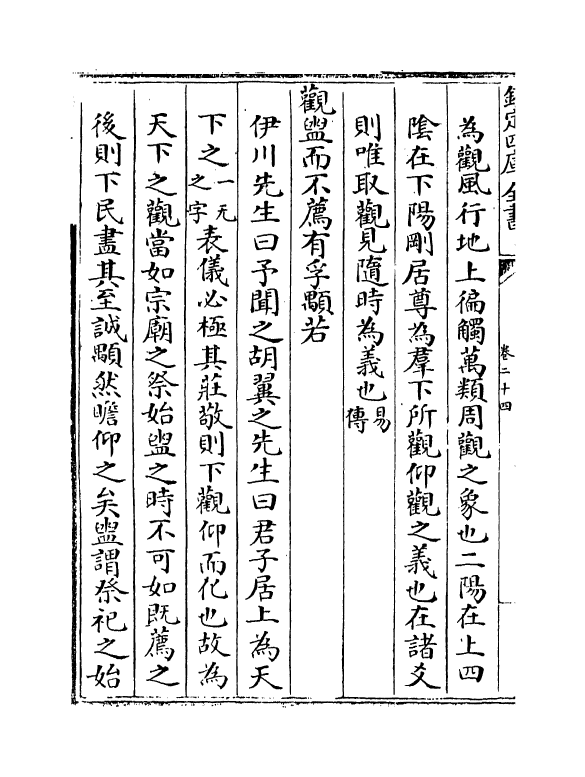 欽定四庫全書
卷二十四
為觀風行地上徧觸萬類周觀之象也二陽在上四
陰在下陽剛居尊為羣下所觀仰觀之義也在諸爻
則唯取觀見隨時為義也易傳
觀盥而不薦有孚顒若
伊川先生曰予聞之胡翼之先生曰君子居上為天
下之一无之字表儀必極其莊敬則下觀仰而化也故為
天下之觀當如宗廟之祭始盥之時不可如既薦之
後則下民盡其至誠顒然瞻仰之矣盥謂祭祀之始